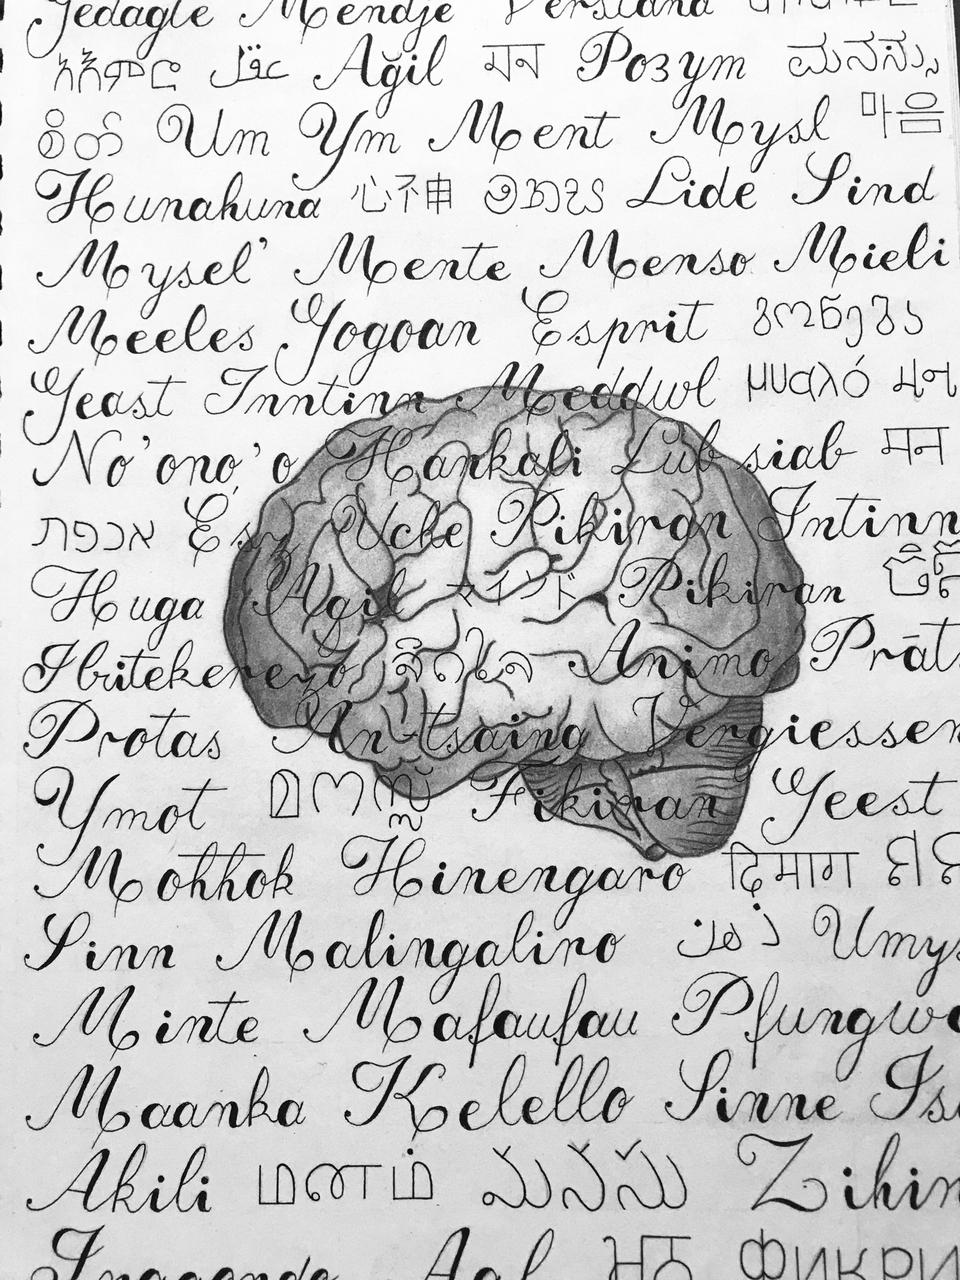 Gedagte Mendje Verstand
አእምሮ عقل Ağil मन Розум ಮನಸ್ಸು
စိတ် Um Ym Ment Mysl 마음
Hunahuna 心不申 මනස Lide Sind
Mysel' Mente Menso Mieli
Meeles Gogoan Esprit გონება
Geast Inntinn Meddwl μυαλό મન
No'ono'o Hankali Lub siab मन
אכפת Ész Uche Pikiran Intinn
Huga Agil マインド Pikiran
Ibitekerezo ຈິດໃຈ Animo Prāts
Protas An-tsaina Vergiessen
Ymot മനസ്സ് Fikiran Yeest
Moħħok Hinengaro दिमाग
Sinn Malingaliro ذهن
Minte Mafaufau
Maanka Kelello Sinne
Akili மனம் మనసు Zihin